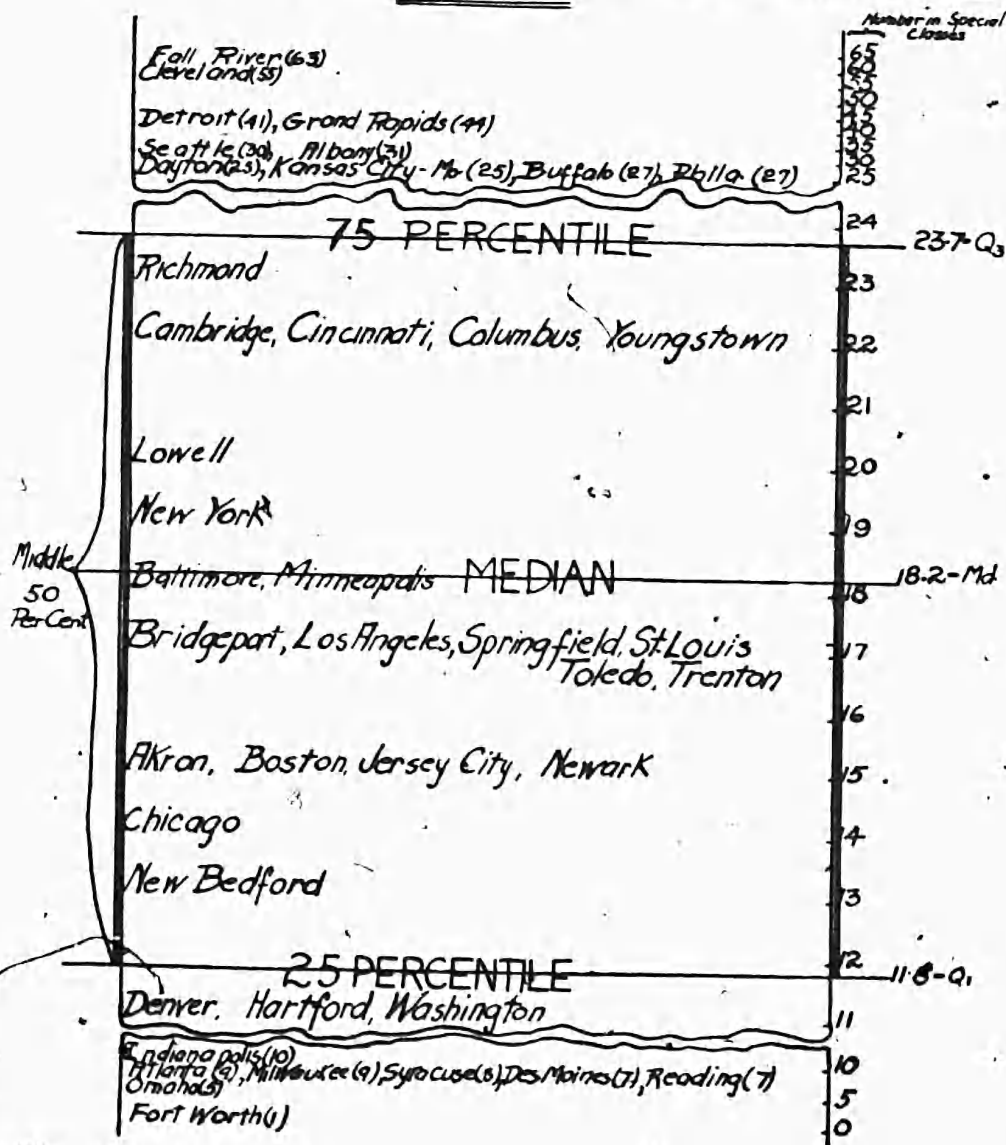 Number in Special
Classes
Fall River (63)
Cleveland (55)
Detroit (41), Grand Rapids (44)
Seattle (30), Albany (31)
Dayton (25), Kansas City-Mo (25), Buffalo (27), Phila. (27)
65
60
55
50
45
40
35
30
25
24
75 PERCENTILE
23.7-Q3
Richmond
23
Cambridge, Cincinnati, Columbus, Youngstown
22
21
Lowell
20
New York
19
Middle
50
Per Cent
Baltimore, Minneapolis MEDIAN
18.2-Md
18
Bridgeport, Los Angeles, Springfield, St. Louis
Toledo, Trenton
17
16
Akron, Boston, Jersey City, Newark
15
Chicago
14
New Bedford
13
12
25 PERCENTILE
11.8-Q1
Denver, Hartford, Washington
11
Indianapolis (10)
Atlanta (9), Milwaukee (9), Syracuse (8), Des Moines (7), Reading (7)
Omaha (5)
Fort Worth (1)
10
5
0